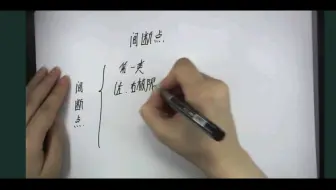 间断点.
间断点
第一类
(左.右极限